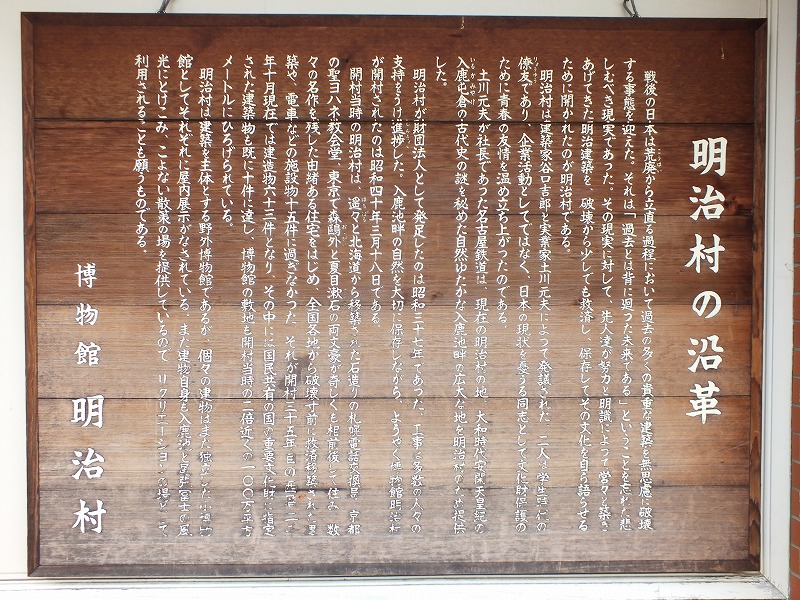 明治村の沿革
戦後の日本は荒廃から立直る過程において過去の多くの貴重な建築を無思慮に破壊
する事態を迎えた。それは「過去とは背に廻った未来である」ということを忘れた悲
しむべき現実であった。その現実に対して、先人達が努力と明識によって営々と築き
あげてきた明治建築を、破壊から少しでも救済し、保存してその文化を自ら語らせる
ために開かれたのが明治村である。
明治村は建築家谷口吉郎と実業家土川元夫によって発議された。二人は学生時代の
僚友であり、企業活動としてではなく、日本の現状を憂うる同志として文化財保護の
ために青春の友情を温め立ち上がったのである。
土川元夫が社長であった名古屋鉄道は、現在の明治村の地、大和時代安閑天皇紀の
入鹿屯倉の古代史の謎を秘めた自然ゆたかな入鹿池畔の広大な地を明治村のため提供
した。
明治村が財団法人として発足したのは昭和三十七年であった。工事は多数の人々の
支持をうけ進捗した。入鹿池畔の自然を大切に保存しながら、ようやく博物館明治村
が開村されたのは昭和四十年三月十八日である。
開村当時の明治村は、遥々と北海道から移築された石造りの札幌電話交換局、京都
の聖ヨハネ教会堂、東京で森鷗外と夏目漱石の両文豪が奇しくも相前後して住み、数
々の名作を残した由緒ある住宅をはじめ、全国各地から破壊寸前に救済移築された建
築や、電車などの施設物十五件に過ぎなかった。それが開村三十五年目の
年十月現在では建造物六十三件となり、その中に国民共有の国の重要文化財に指定
された建築物も既に十件に達し、博物館の敷地も開村当時の二倍近くの一〇〇万平方
メートルにひろげられている。
明治村は建築を主体とする野外博物館であるが、個々の建物はまた独立した小博物
館としてそれぞれに屋内展示がなされている。また建物自身も入鹿池と尾張富士の風
光にとけこみ、こよない散策の場を提供しているので、リクリエーションの場として
利用されることも願うものである。
博物館 明治村